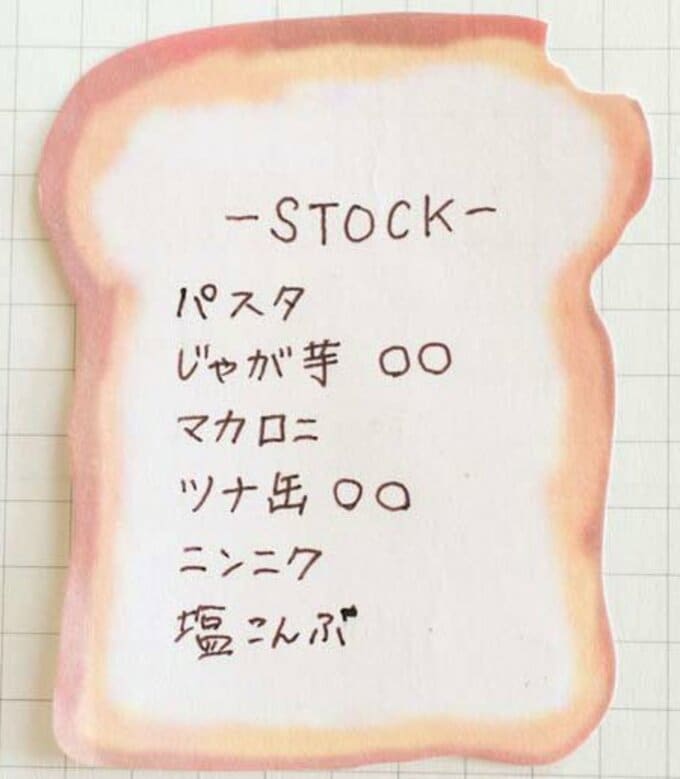 -STOCK-
パスタ
じゃが芋 〇〇
マカロニ
ツナ缶 〇〇
ニンニク
塩こんぶ